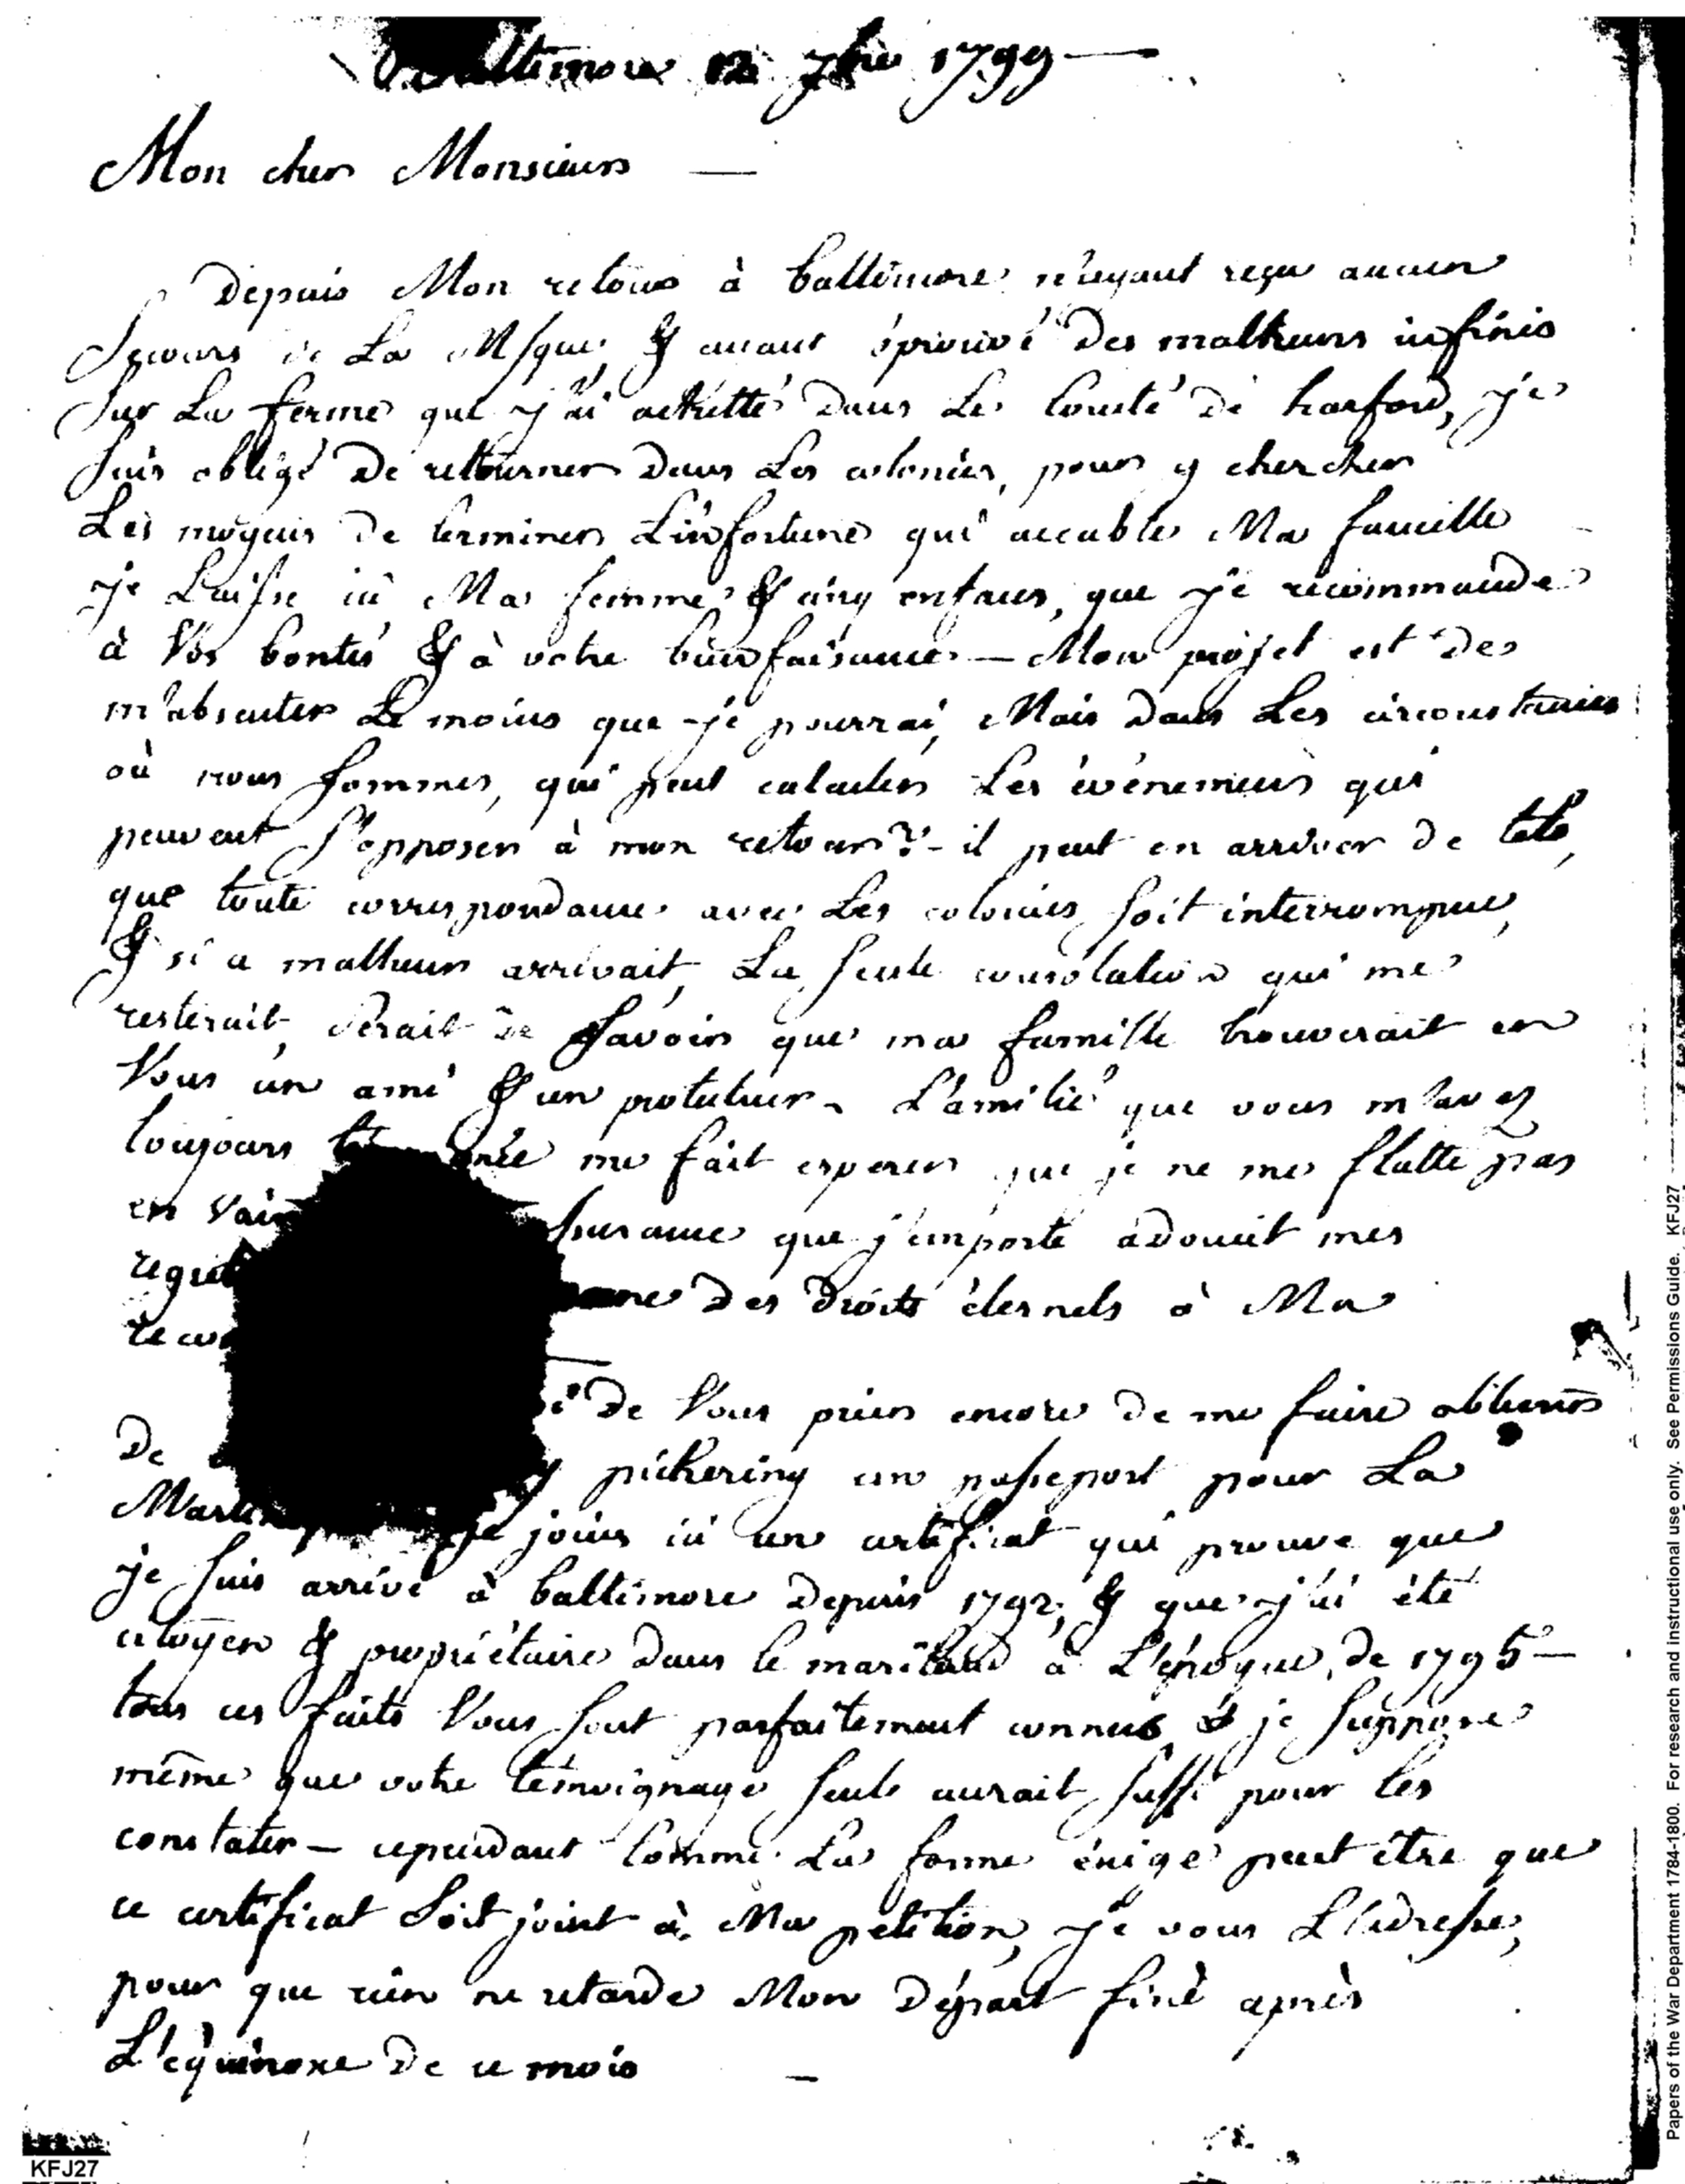 Baltimore 12 7bre 1799 —
Mon cher Monsieur —
Depuis Mon retour à baltimore n'ayant reçu aucun
Secours de La Mque, & ayant éprouvé Des malheurs infinis
Sur La ferme que j'ai achetté dans Le Comté de harford, je
Suis obligé De retourner Dans Les colonies, pour y chercher
Les moyens De terminer L'infortune qui accable Ma famille
je Laisse ici Ma femme & cinq enfans, que je recommande
à Vos bontés & à votre bienfaisance — Mon projet est De
m'absenter Le moins que je pourrai, Mais Dans Les circonstances
où nous Sommes, qui peut calculer Les événemens qui
peuvent S'opposer à mon retour? - il peut en arriver de tels,
que toute correspondance avec Les colonies Soit interrompue,
& si ce malheur arrivait, La Seule consolation qui me
resterait, Serait De Savoir que ma famille trouverait en
Vous un ami & un protecteur - L'amitié que vous m'avez
toujours me fait esperer que je ne me flatte pas
en Vain que j'emporte adoucit mes
Des Droits éternels à Ma
De Vous prier encore De me faire obtenir
De pickering un passeport pour La
je joins ici un certificat qui prouve que
je Suis arrivé à baltimore Depuis 1792, & que j'ai été
citoyen & propriétaire Dans le mariland à L'époque de 1795 —
tous ces faits Vous Sont parfaitement connus & je Suppose
même que votre témoignage Seul aurait Suffi pour les
constater — cependant Comme La forme éxige peut être que
ce certificat Soit joint à Ma petition, je vous L'adresse,
pour que rien ne retarde Mon Départ fixé après
L'équinoxe De ce mois —
KFJ27
Papers of the War Department 1784-1800. For research and instructional use only. See Permissions Guide. KFJ27